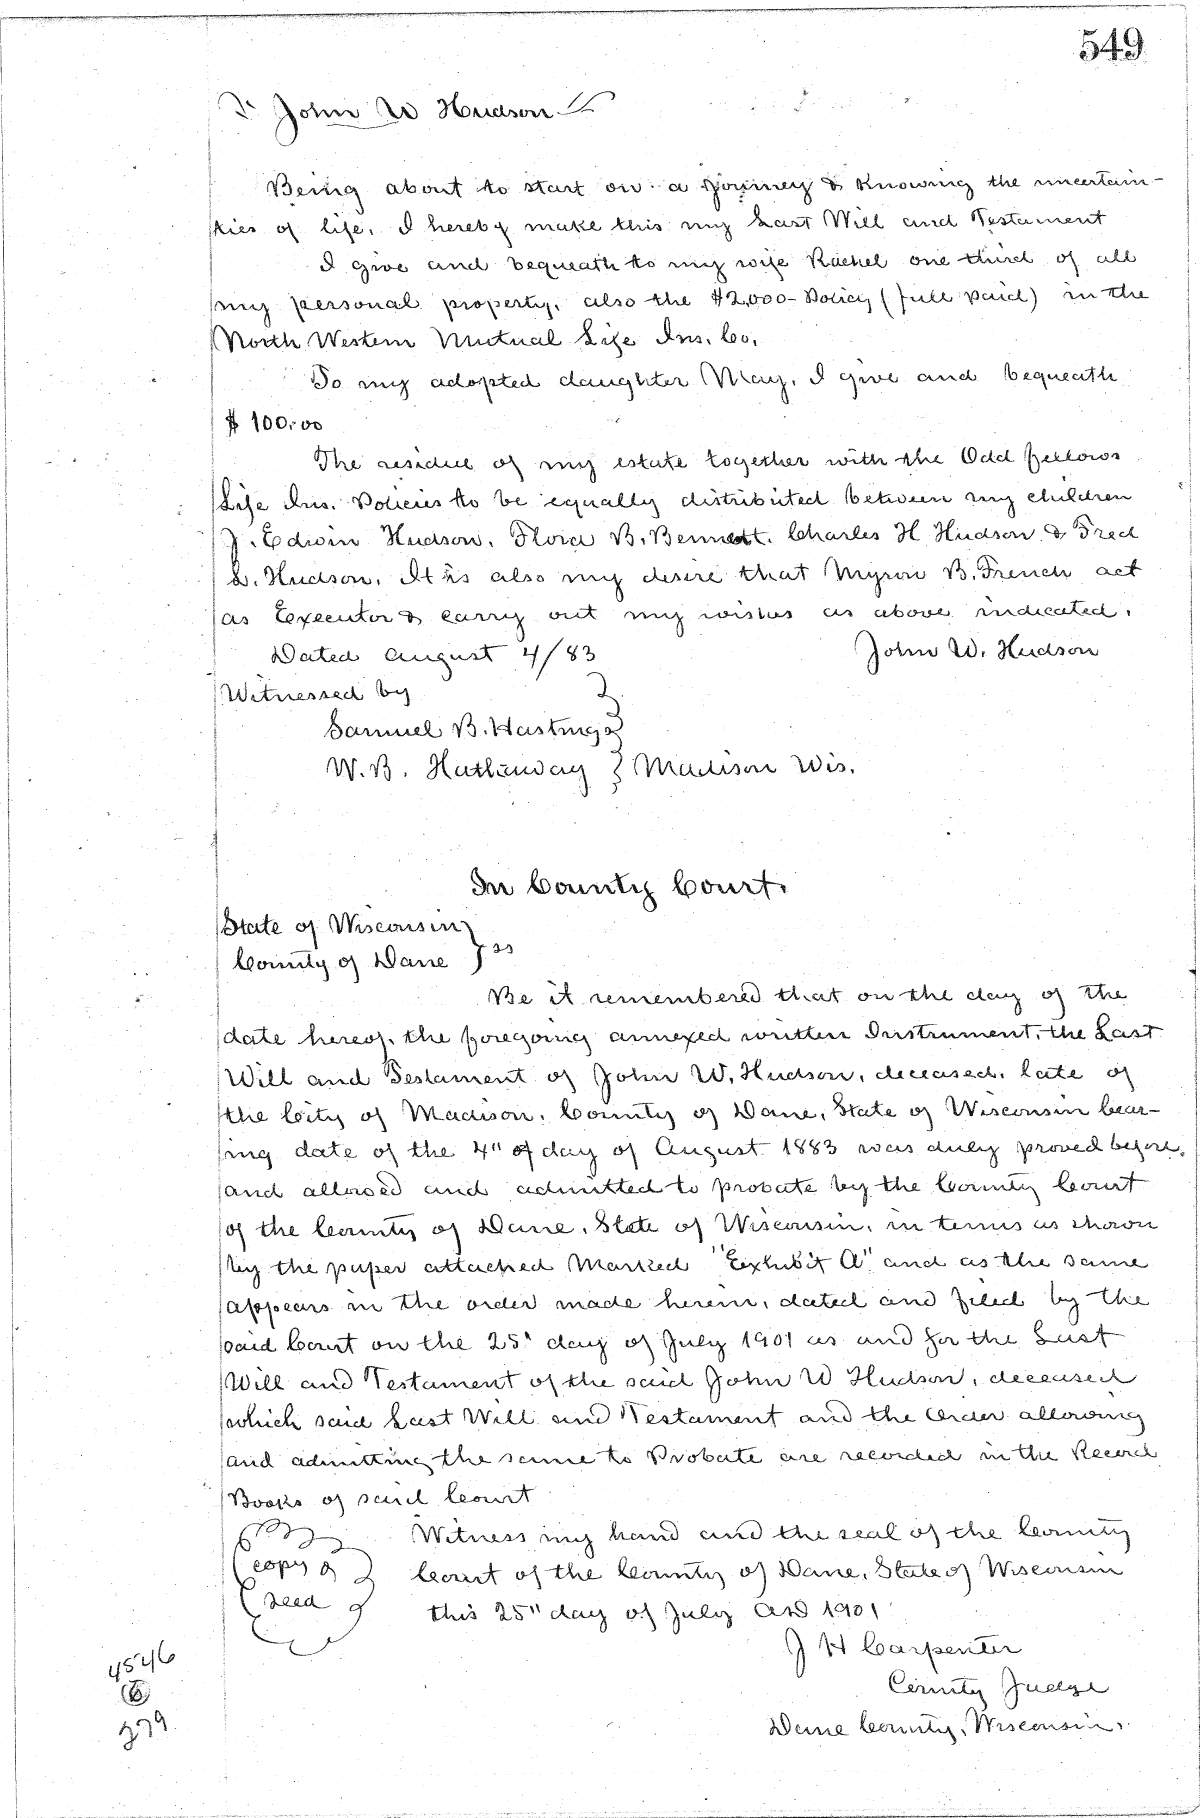 549
John W Hudson
Being about to start on a journey & knowing the uncertain-
ties of life, I hereby make this my Last Will and Testament
I give and bequeath to my wife Rachel one third of all
my personal property, also the $2,000- Policy (full paid) in the
North Western Mutual Life Ins. Co.
To my adopted daughter May, I give and bequeath
$ 100.00
The residue of my estate together with the Odd fellows
Life Ins. Policies to be equally distributed between my children
J. Edwin Hudson, Flora B. Bennett, Charles H Hudson & Fred
L. Hudson. It is also my desire that Myron B. French act
as Executor & carry out my wishes as above indicated.
Dated August 4/83
John W. Hudson
Witnessed by
Samuel B. Hastings
W. B. Hathaway } Madison Wis.
In County Court.
State of Wisconsin
County of Dane } ss
Be it remembered that on the day of the
date hereof, the foregoing annexed written Instrument, the Last
Will and Testament of John W. Hudson, deceased, late of
the City of Madison, County of Dane, State of Wisconsin bear-
ing date of the 4" of day of August 1883 was duly proved before,
and allowed and admitted to probate by the County Court
of the County of Dane, State of Wisconsin, in terms as shown
by the paper attached Marked "Exhibit A" and as the same
appears in the order made herein, dated and filed by the
said Court on the 25" day of July 1901 as and for the Last
Will and Testament of the said John W Hudson, deceased
which said Last Will and Testament and the Order allowing
and admitting the same to Probate are recorded in the Record
Books of said Court
Witness my hand and the seal of the County
copy of
Court of the County of Dane, State of Wisconsin
seal
this 25" day of July AD 1901
J H Carpenter
4546
County Judge
279
Dane County, Wisconsin.